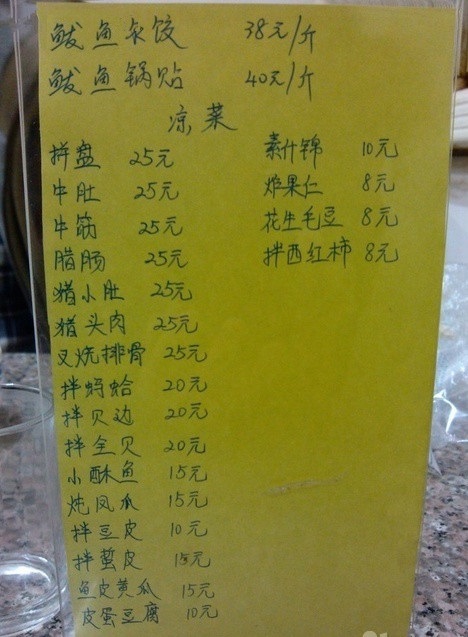 鲅鱼水饺 38元/斤
鲅鱼锅贴 40元/斤
凉菜
拼盘 25元
牛肚 25元
牛筋 25元
腊肠 25元
猪小肚 25元
猪头肉 25元
叉烧排骨 25元
拌蚂蛤 20元
拌贝边 20元
拌全贝 20元
小酥鱼 15元
炖凤爪 15元
拌豆皮 10元
拌蜇皮 15元
鱼皮黄瓜 15元
皮蛋豆腐 10元
素什锦 10元
炸果仁 8元
花生毛豆 8元
拌西红柿 8元